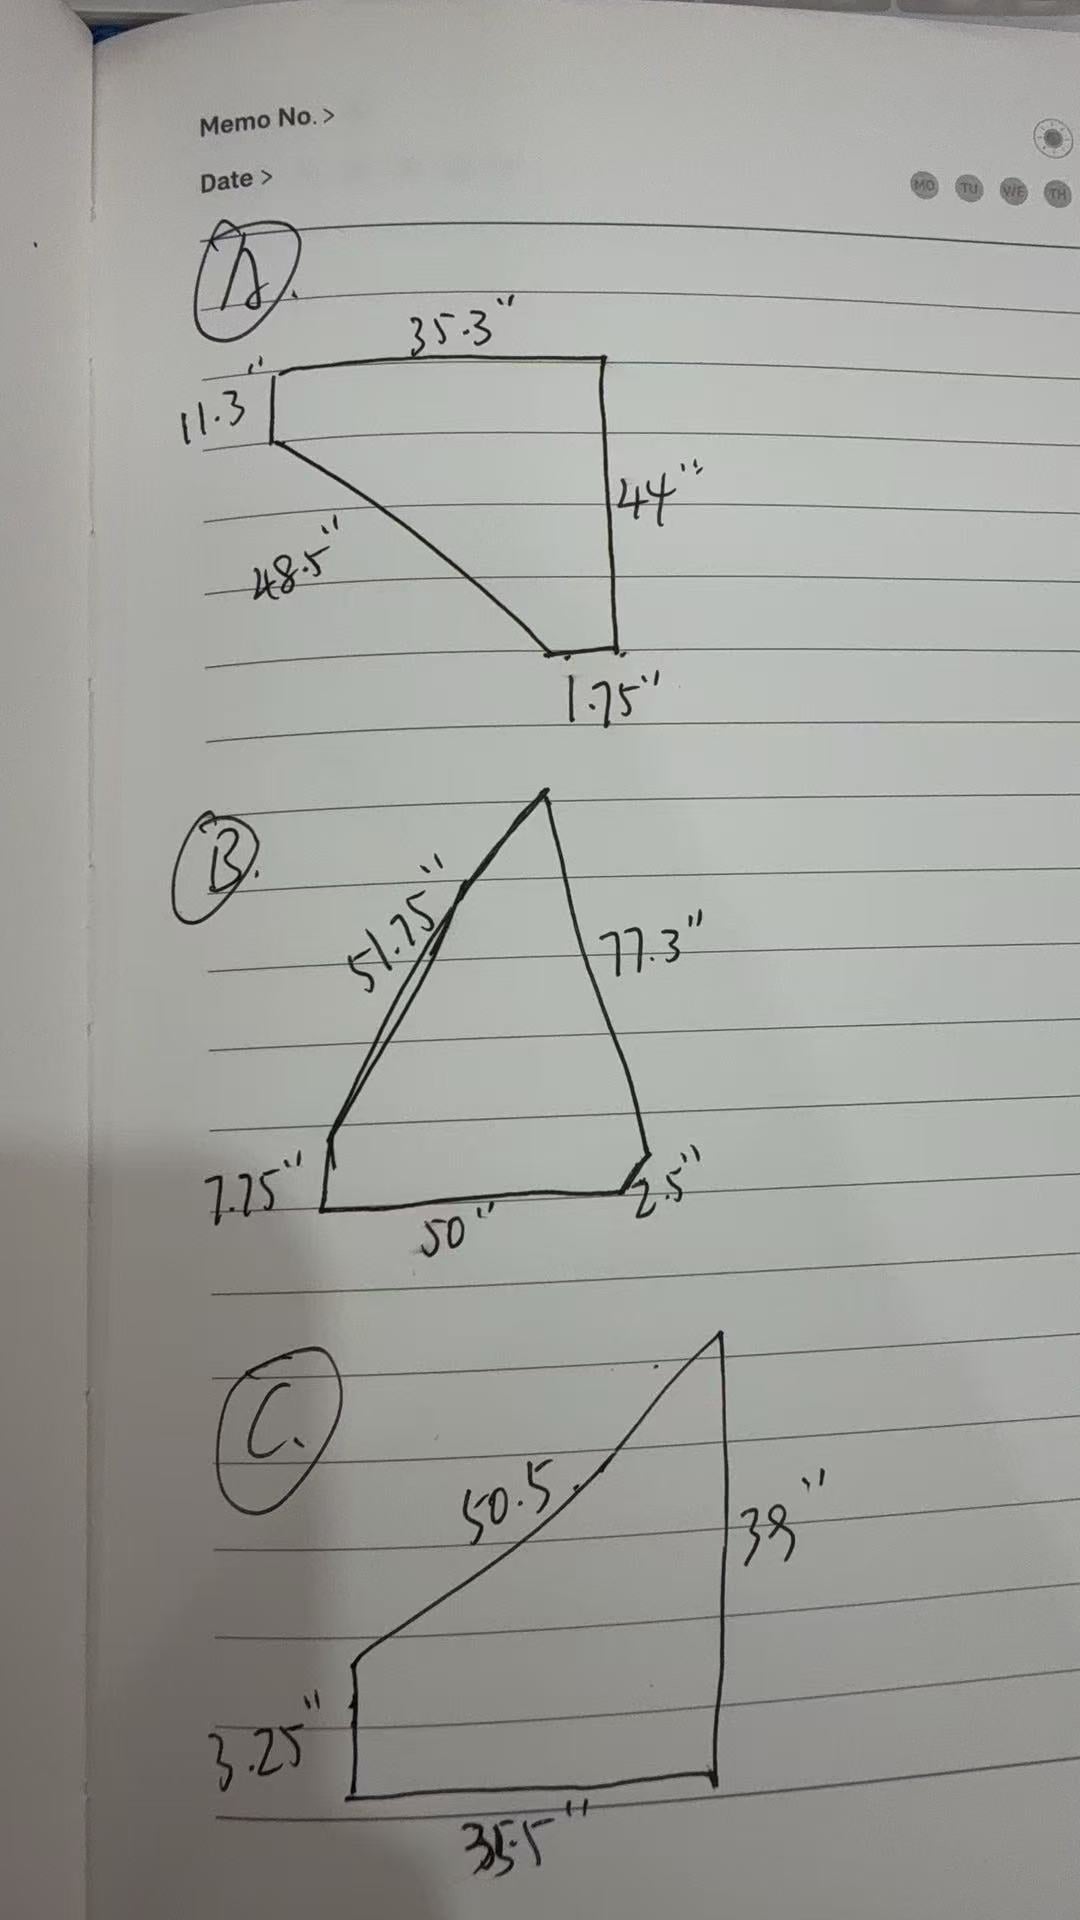 Memo No. >
Date >
MO TU WE TH
A.
35.3"
11.3"
44"
48.5"
1.75"
B.
51.75"
77.3"
7.75"
2.5"
50"
C.
50.5
3.25"
35.5"